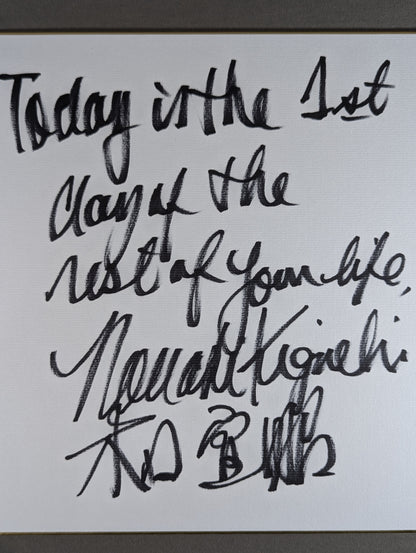 Today is the 1st
day of the
rest of your life,
Noriaki Kiguchi
木口宣昭